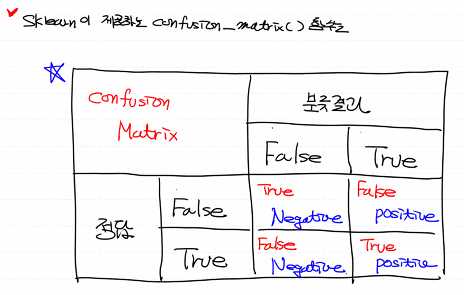 Sklearn이 제공하는 confusion_matrix() 함수는
Confusion
Matrix
분류결과
False True
정답
False
True Negative
False positive
True
False Negative
True positive